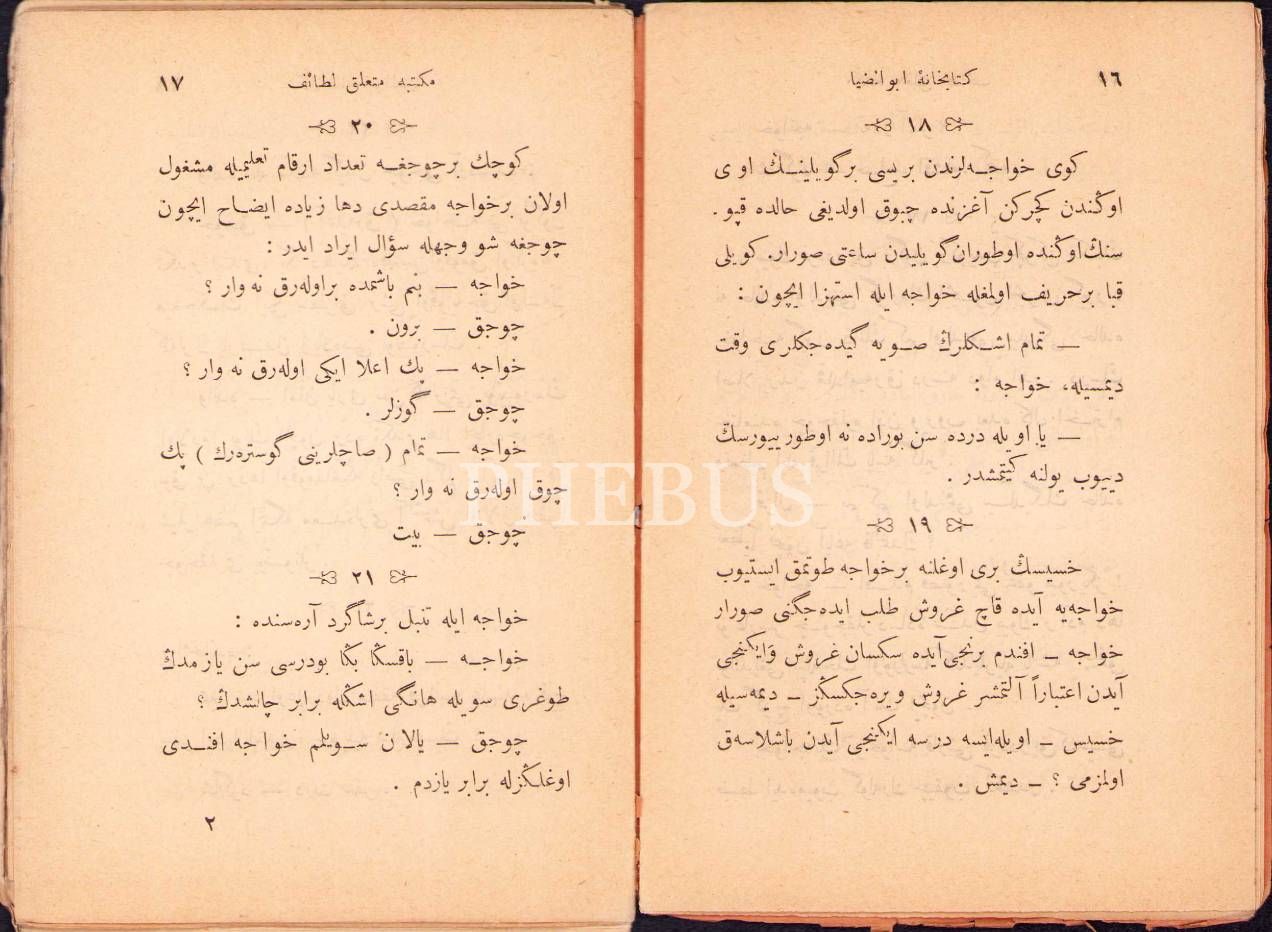 ١٦ کتابخانهٔ ابوالضیا
١٨
کوی خواجه‌لرندن بریسی برگویلینڭ اوی
اوڭندن کچرکن آغزنده چبوق اولدیغی حالده قپو.
سنڭ اوڭنده اوطوران گویلیدن ساعتی صورار. کویلی
قبا برحریف اولمغله خواجه ایله استهزا ایچون :
— تمام اشکلرڭ صویه گیده‌جکلری وقت
دیمسیله، خواجه :
— یا! اویله درده سن بوراده نه اوطورییورسڭ
دییوب یولنه کیتمشدر .
١٩
خسیسڭ بری اوغلنه برخواجه طوتمق ایستیوب
خواجه‌یه آیده قاچ غروش طلب ایده‌جگنی صورار
خواجه – افندم برنجی آیده سکسان غروش وایکنجی
آیدن اعتباراً آلتمشر غروش ویره‌جکسڭز – دیمه‌سیله
خسیس – اویله‌ایسه درسه ایکنجی آیدن باشلاسه‌ق
اولمزمی ؟ – دیمش .
مکتبه متعلق لطائف ١٧
٢٠
کوچك برچوجغه تعداد ارقام تعلیمیله مشغول
اولان برخواجه مقصدی دها زیاده ایضاح ایچون
چوجغه شو وجهله سؤال ایراد ایدر :
خواجه — بنم باشمده براوله‌رق نه وار ؟
چوجق — برون .
خواجه — پك اعلا ایکی اوله‌رق نه وار ؟
چوجق — گوزلر .
خواجه — تمام ( صاچلرینی گوستره‌رك ) پك
چوق اوله‌رق نه وار ؟
چوجق — بیت
٢١
خواجه ایله تنبل برشاگرد آره‌سنده :
خواجه — باقسڭا بڭا بودرسی سن یازمدڭ
طوغری سویله هانگی اشڭله برابر چالشدڭ ؟
چوجق — یالان سویلمم خواجه افندی
اوغلڭزله برابر یازدم .
٢
PHEBUS